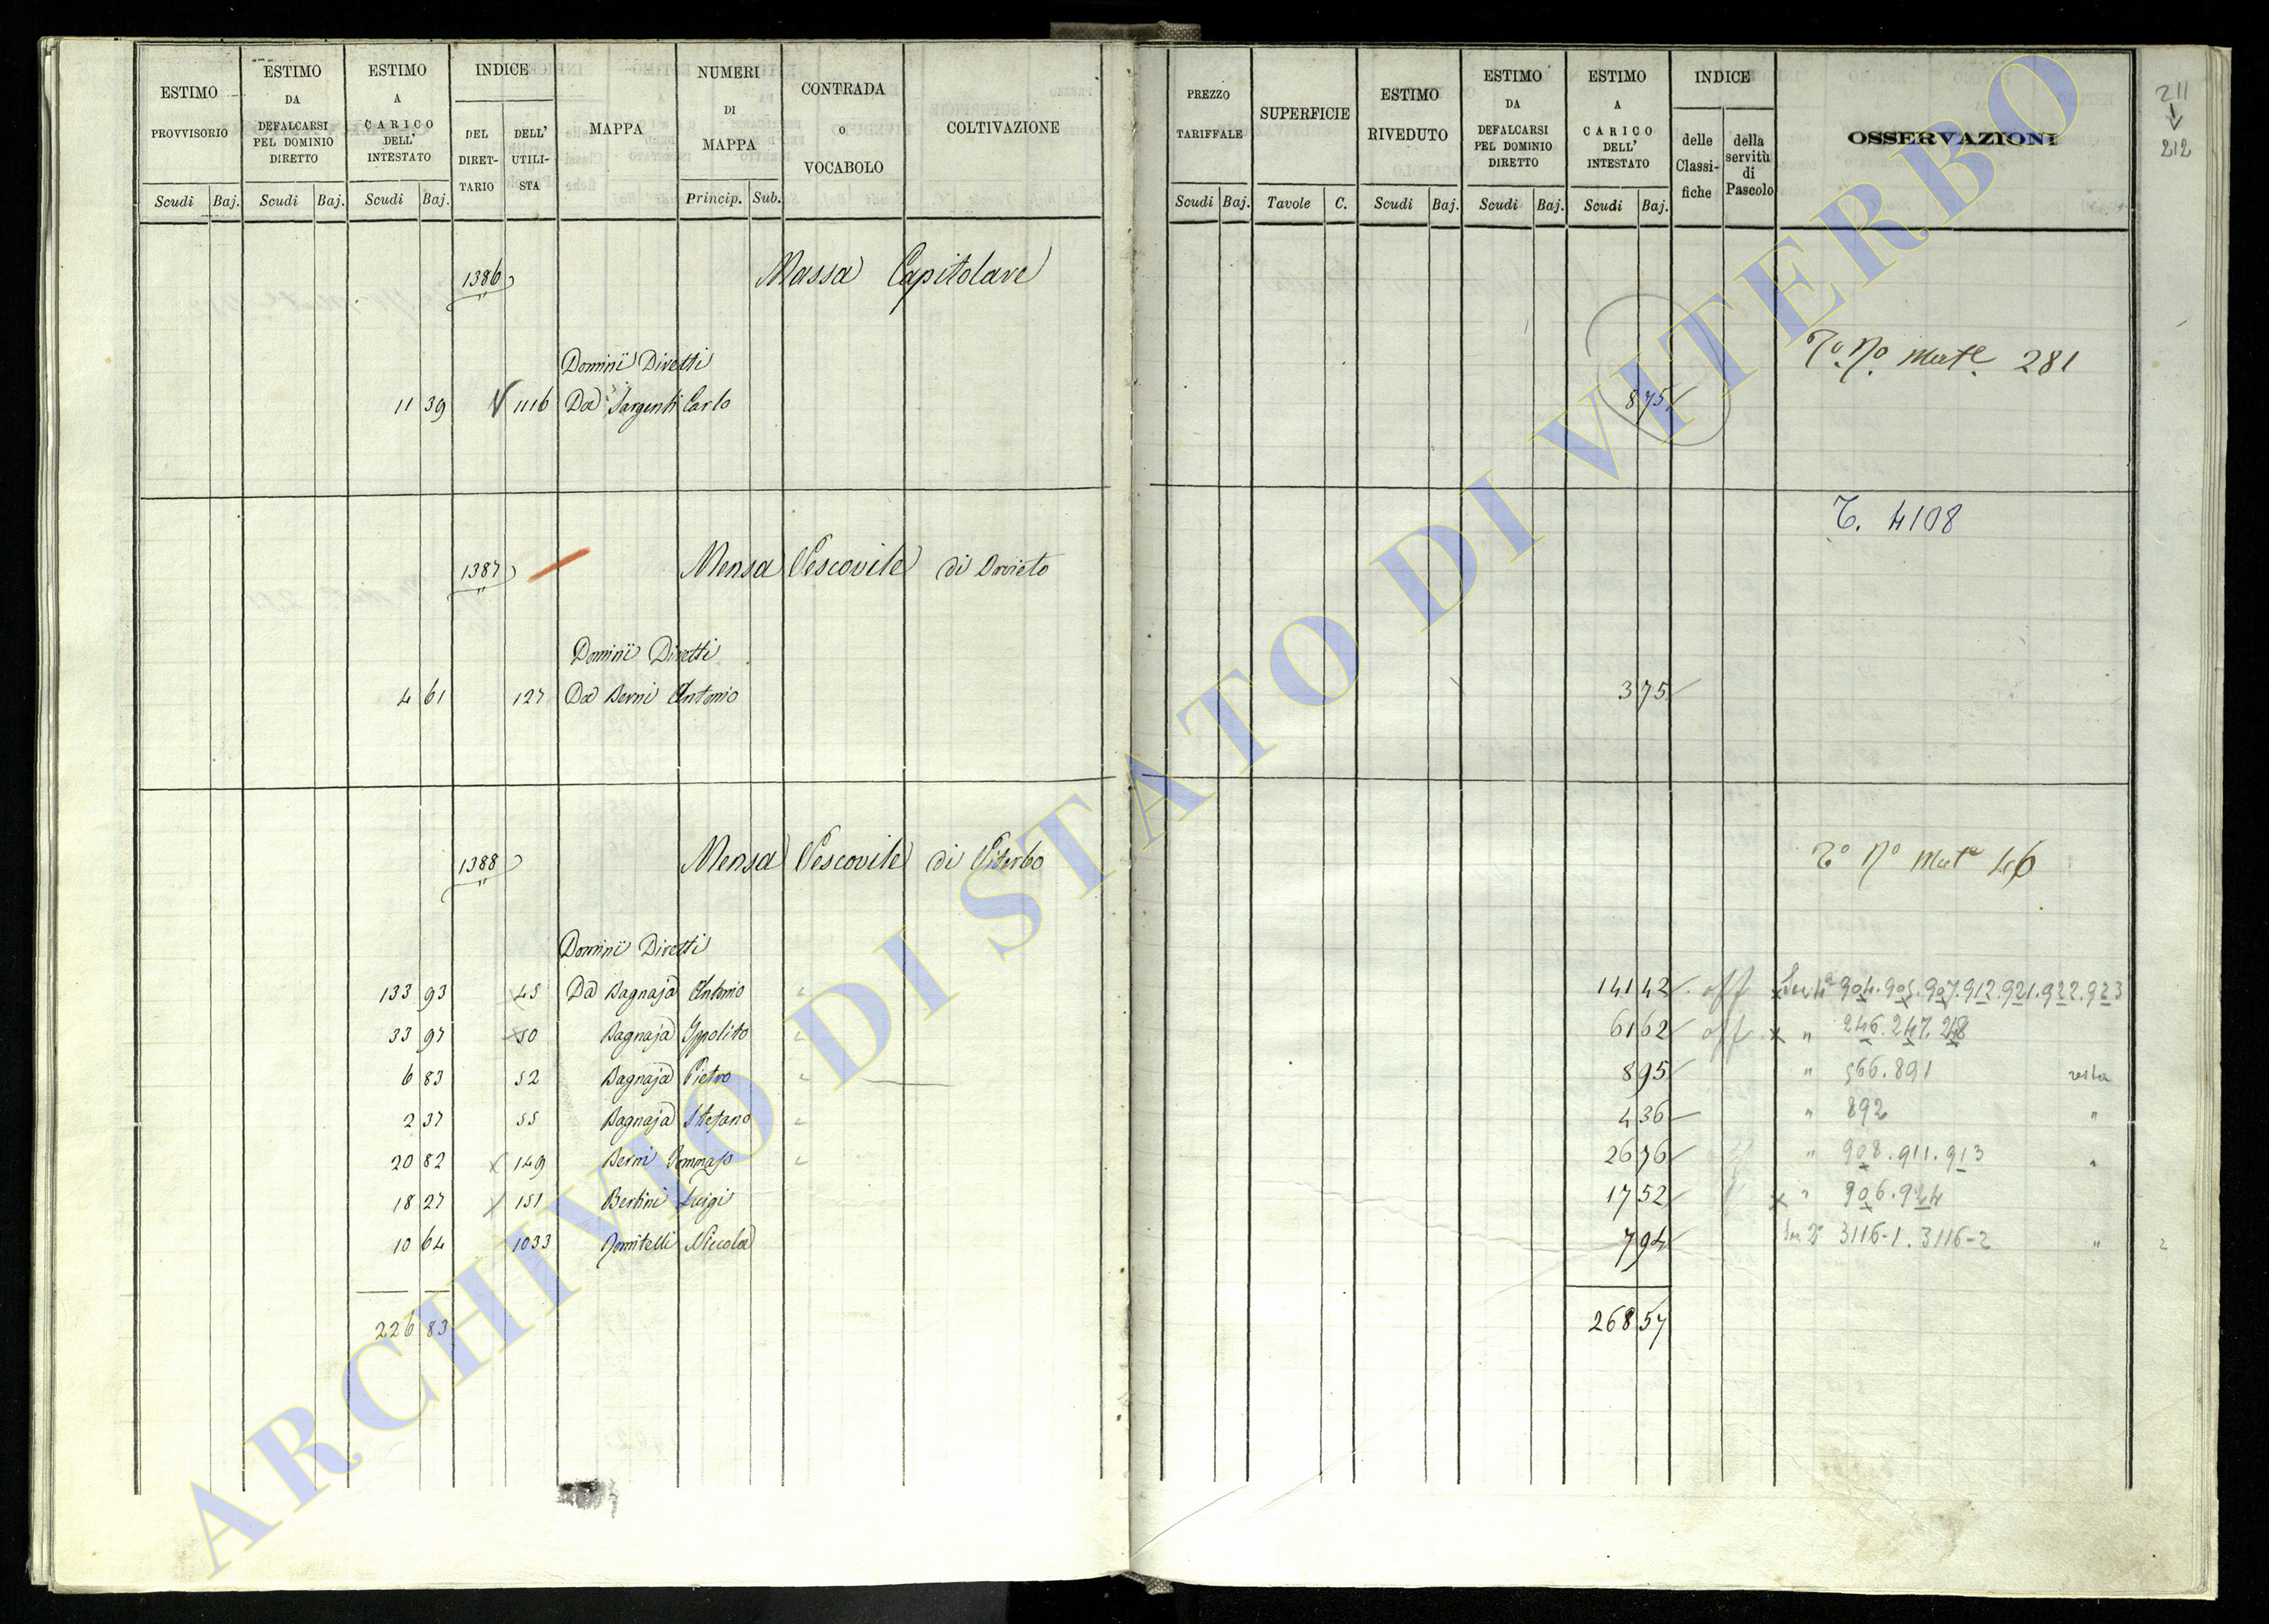 ESTIMO PROVVISORIO Scudi Baj.
ESTIMO DA DEFALCARSI PEL DOMINIO DIRETTO Scudi Baj.
ESTIMO A CARICO DELL' INTESTATO Scudi Baj.
INDICE DEL DIRETTARIO DELL' UTILISTA
MAPPA
NUMERI DI MAPPA Princip. Sub.
CONTRADA O VOCABOLO
COLTIVAZIONE
PREZZO TARIFFALE Scudi Baj.
SUPERFICIE Tavole C.
ESTIMO RIVEDUTO Scudi Baj.
ESTIMO DA DEFALCARSI PEL DOMINIO DIRETTO Scudi Baj.
ESTIMO A CARICO DELL' INTESTATO Scudi Baj.
INDICE delle Classifiche della servitù di Pascolo
OSSERVAZIONI
211
212
1386 Massa Capitolare
Dominii Diretti Tº Nº Mate 281
11 39 1116 Da Sargenti Carlo 8 75
T. 4108
1387 Mensa Vescovile di Orvieto
Dominii Diretti
4 61 127 Da Berni Antonio 3 75
1388 Mensa Vescovile di Viterbo Tº Nº Mate 46
Dominii Diretti
133 93 45 Da Bagnaja Antonio 141 42 off x Sez 1ª 904.905.907.912.921.922.923
33 97 50 Bagnaja Ippolito 61 62 off x " 246.247.248
6 83 52 Bagnaja Pietro 8 95 " 566.891 resta
2 37 55 Bagnaja Stefano 4 36 " 892 "
20 82 x 149 Berni Tommaso 26 76 " 908.911.913 "
18 27 x 151 Bertini Luigi 17 52 x " 906.924
10 64 1033 Pomitelli Niccola 7 94 Sez 2ª 3116-1.3116-2 " 2
226 83 268 57
ARCHIVIO DI STATO DI VITERBO